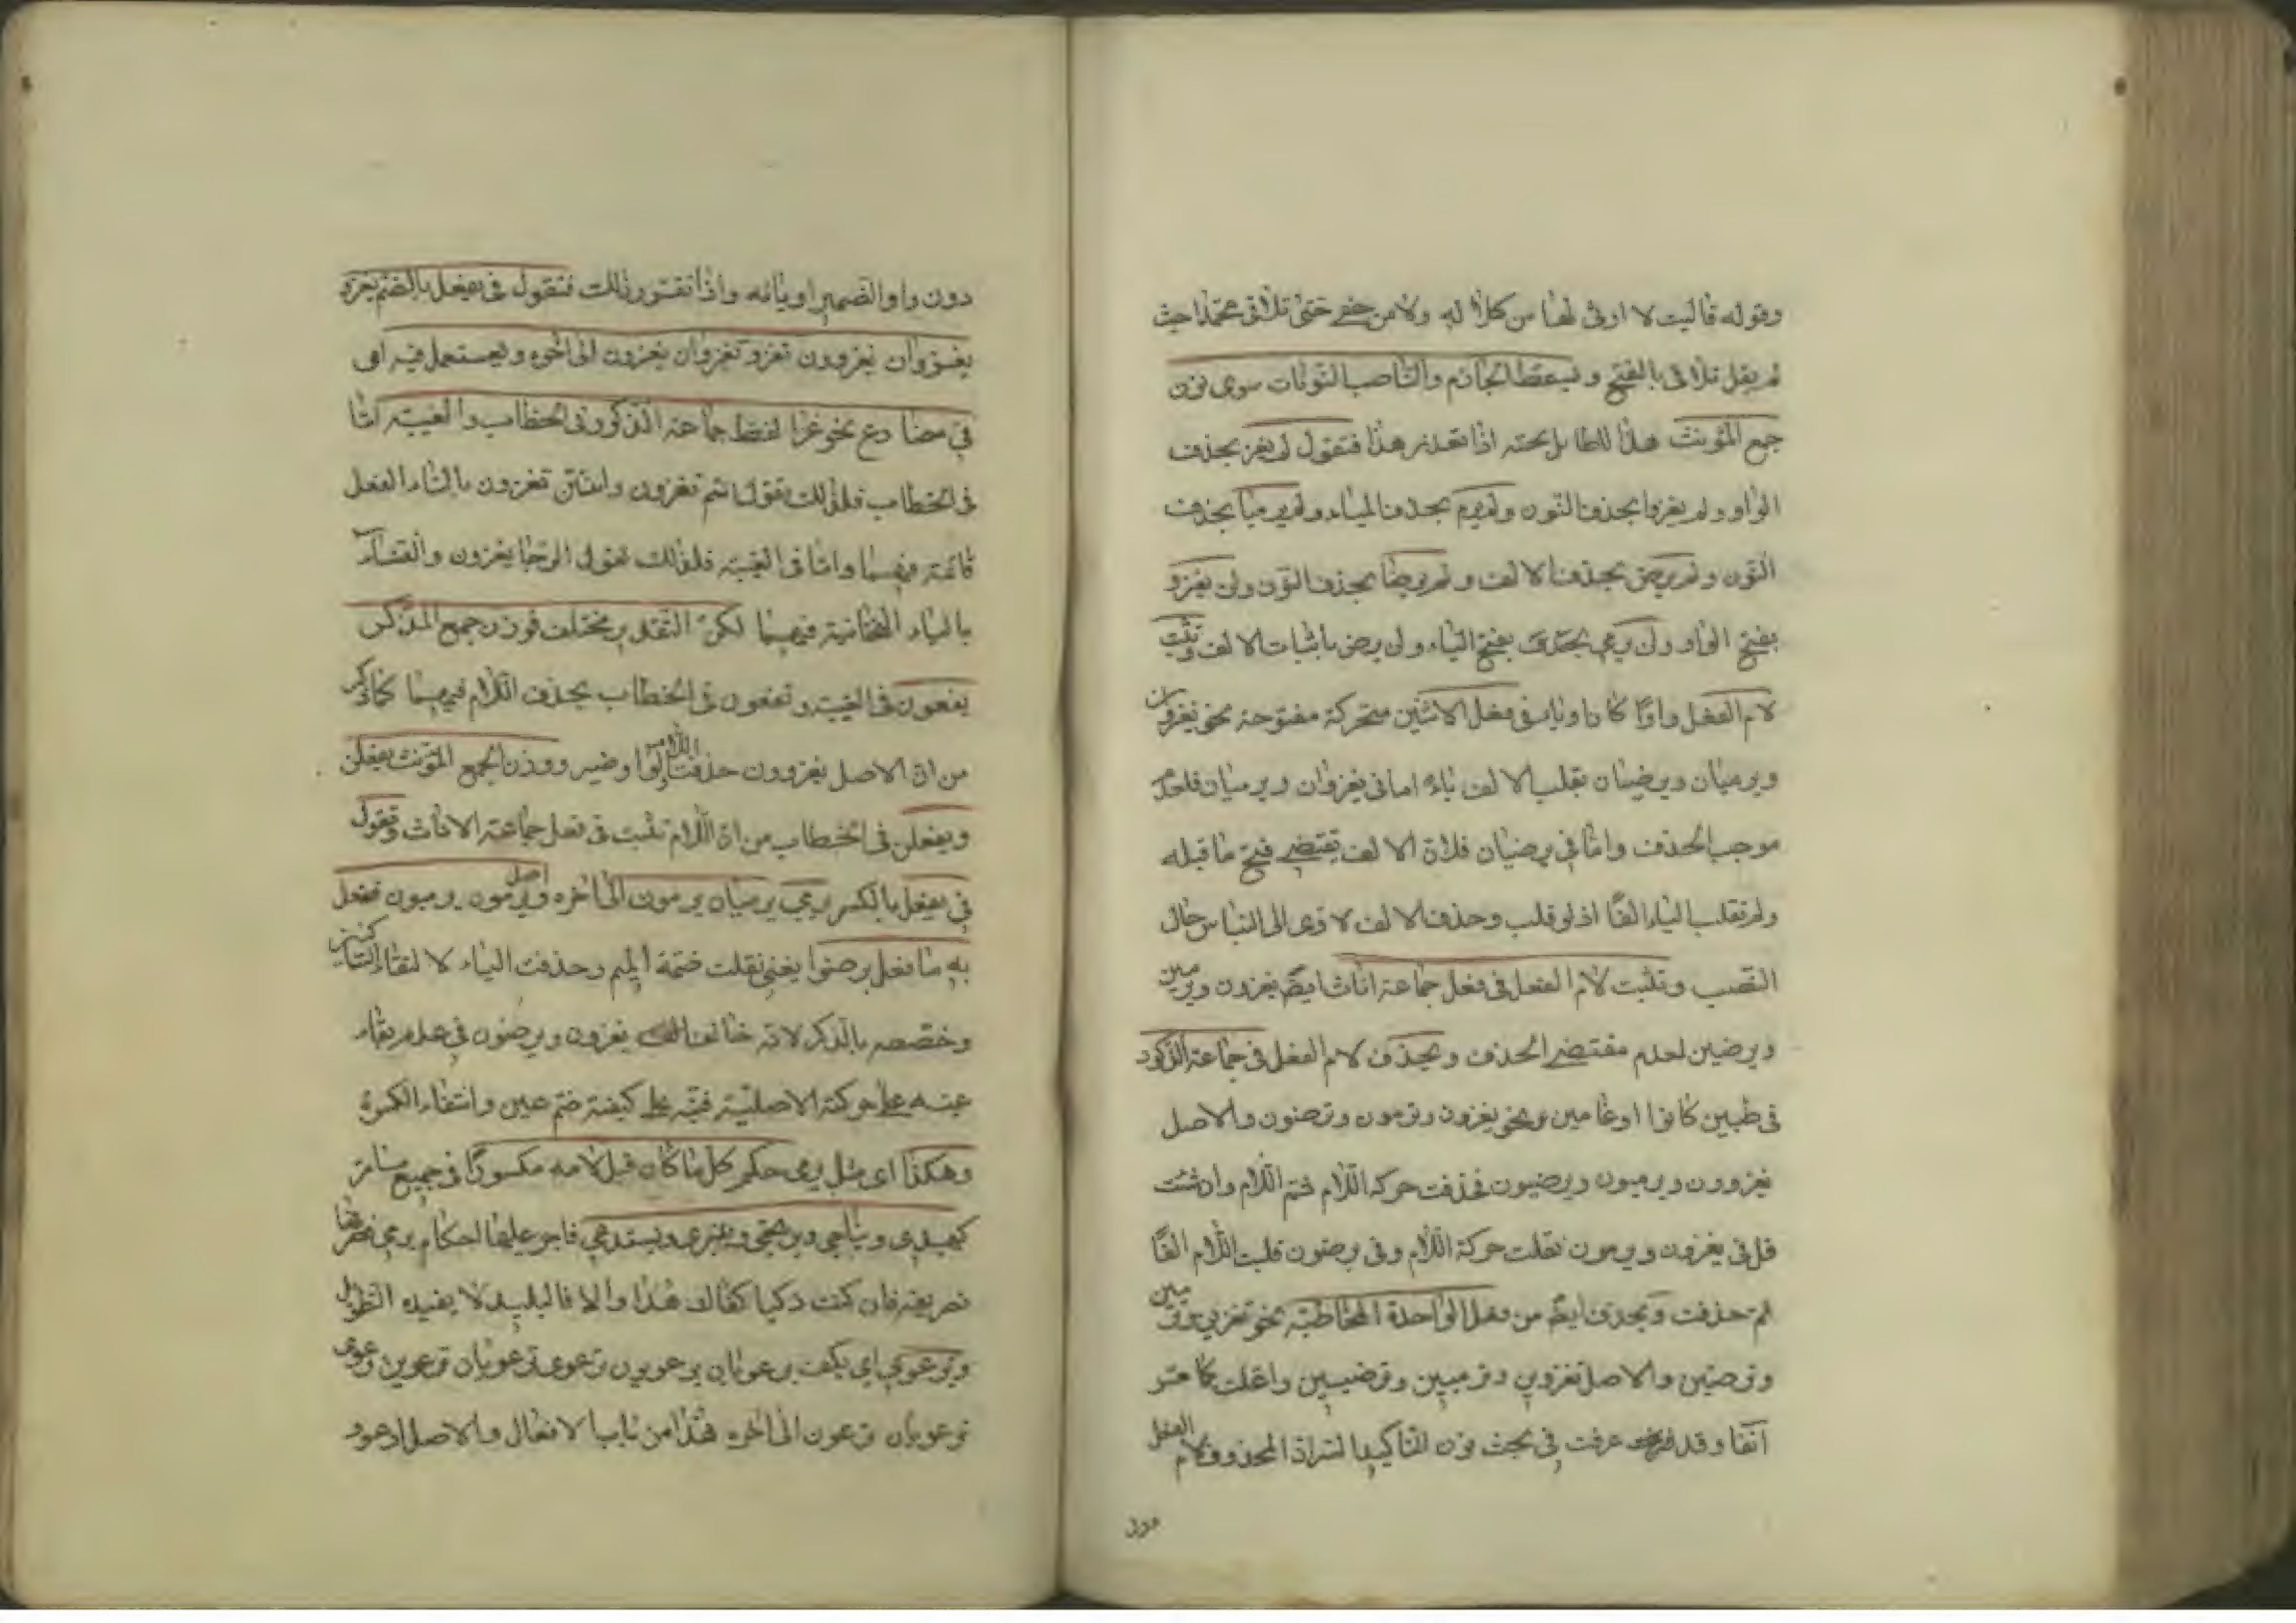 وقوله فآليت لا ارثى لها من كلالة ولا من حفى حتى تلاقى محمدا حيث
لم يقل تلاقى بالفتح ويسقط الجازم والناصب النونات سوى نون
جمع المؤنث هذا لا طايل تحته اذا تقدر هذا فتقول لم يغز بحذف
الواو ولم يغزوا بحذف النون ولم يرم بحذف الياء ولم يرميا بحذف
النون ولم يرض بحذف الالف ولم يرضيا بحذف النون ولن يغزو
بفتح الواو ولن يرمى بفتح الياء ولن يرضى باثبات الالف وتثبت
لام الفعل واوًا كان او ياء فى فعل الاثنين متحركة مفتوحة نحو يغزوان
ويرميان ويرضيان بقلب الالف ياء اما فى يغزوان ويرميان فلعدم
موجب الحذف واما فى يرضيان فلان الالف يقتضى فتح ما قبله
ولم تقلب الياء الفًا اذ لو قلب وحذف الالف لادى الى التباس حال
النصب وتثبت لام الفعل فى فعل جماعة اناث ايضً يغزون ويرمين
ويرضين لعدم مقتضى الحذف ويحذف لام الفعل فى جماعة الذكور
مخاطبين كانوا او غائبين نحو يغزون وترمون وترضون والاصل
يغزوون ويرميون ويرضيون فحذفت حركة اللام ثم اللام وان شئت
قل فى يغزون ويرمون نقلت حركة اللام وفى يرضون قلبت اللام الفًا
ثم حذفت ويحذف ايضً من فعل الواحدة المخاطبة نحو تغزين وترمين
وترضين والاصل تغزوين وترميين وترضيين واعلت كما مر
آنفًا وقد عرفت فى بحث نون التاكيد ان المحذوف لام الفعل
دون
دون واو الضمير او يائه واذا تقرر ذلك فتقول فى يفعل بالضم يغزو
يغزوان يغزون تغزو تغزوان يغزون الى آخره ويستعمل فيه اى
فى مضارع نحو غزا لفظ جماعة الذكور فى الخطاب والغيبة اما
فى الخطاب فلذلك تقول انتم تغزون وانتن تغزون بالتاء الفعل
فيهما واما فى الغيبة فلذلك تقول الرجال يغزون والنساء
بالياء التحتانية فيهما لكن التقدير مختلف فوزن جمع المذكر
يفعون فى الغيبة وتفعون فى الخطاب بحذف اللام فيهما كما ذكر
من ان الاصل يغزوون حذفت اللام ووزن الجمع المؤنث يفعلن
وتفعلن فى الخطاب من ان اللام تثبت فى فعل جماعة الاناث وتقول
فى يفعل بالكسر يرمى يرميان يرمون الى آخره واصل يرمون يرميون ففعل
به ما فعل برضوا يعنى نقلت ضمة الى الميم وحذفت الياء لالتقاء الساكنين
وخصصه بالذكر لانه خالف يغزون ويرضون فى عدم بقاء
عينه على حركته الاصلية فنبه على كيفية ضم عين وانتفاء الكسرة
وهكذا اى مثل يرمى حكم كل ما كان قبل لامه مكسورًا فى جميع ما مر
كيهدى ويناجى ويرتجى ويعترى ويستدعى فاجر عليها احكام يرمى فصرفها
تصريفه فان كنت ذكيا كفاك هذا والا فالبليد لا يفيده التطويل
ويرعوى اى يكف يرعويان يرعوون ترعوى ترعويان يرعوين ترعوى
ترعويان ترعون الى آخره هذا من باب الافعال والاصل ارعوو